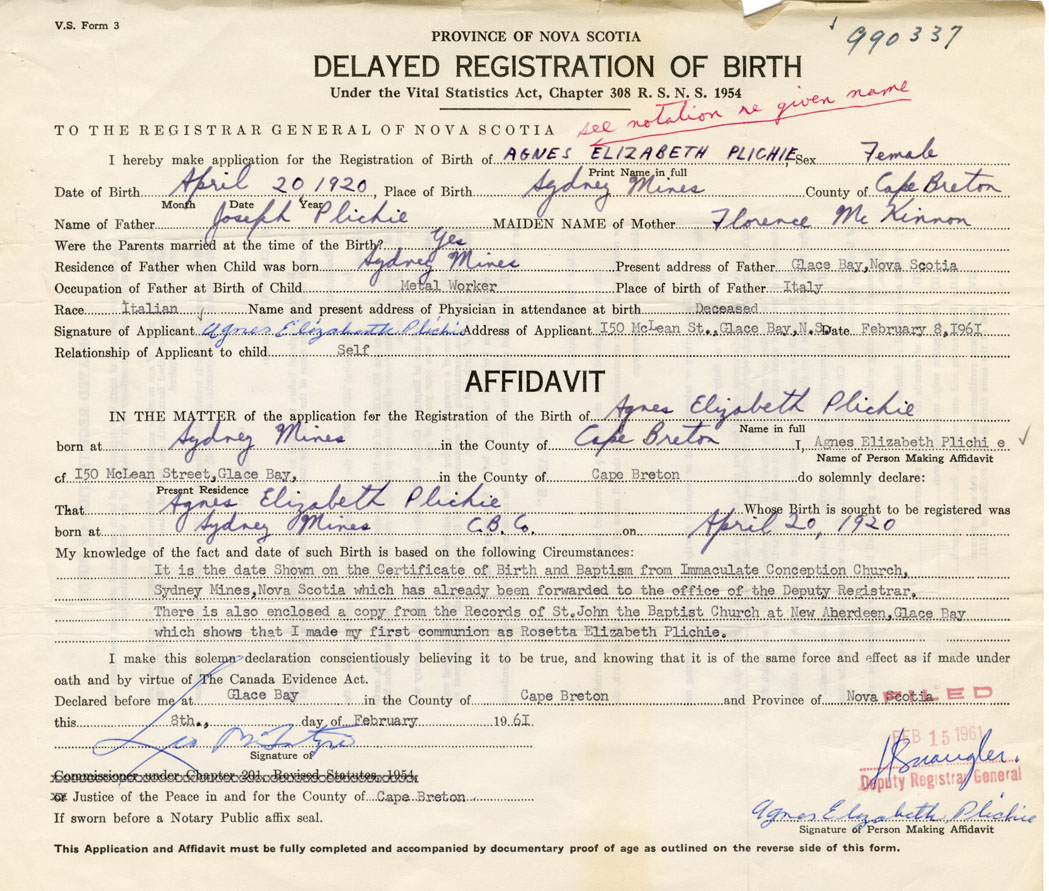 V.S. Form 3
990337
PROVINCE OF NOVA SCOTIA
DELAYED REGISTRATION OF BIRTH
Under the Vital Statistics Act, Chapter 308 R. S. N. S. 1954
see notation re given name
TO THE REGISTRAR GENERAL OF NOVA SCOTIA
I hereby make application for the Registration of Birth of AGNES ELIZABETH PLICHIE, Sex Female
Print Name in full
Date of Birth April 20, 1920, Place of Birth Sydney Mines County of Cape Breton
Month Date Year
Name of Father Joseph Plichie MAIDEN NAME of Mother Florence Mc Kinnon
Were the Parents married at the time of the Birth? Yes
Residence of Father when Child was born Sydney Mines Present address of Father Glace Bay, Nova Scotia
Occupation of Father at Birth of Child Metal Worker Place of birth of Father Italy
Race Italian Name and present address of Physician in attendance at birth Deceased
Signature of Applicant Agnes Elizabeth Plichie Address of Applicant 150 McLean St., Glace Bay, N.S. Date February 8, 1961
Relationship of Applicant to child Self
AFFIDAVIT
IN THE MATTER of the application for the Registration of the Birth of Agnes Elizabeth Plichie
Name in full
born at Sydney Mines in the County of Cape Breton I, Agnes Elizabeth Plichi e
Name of Person Making Affidavit
of 150 McLean Street, Glace Bay, in the County of Cape Breton do solemnly declare:
Present Residence
That Agnes Elizabeth Plichie Whose Birth is sought to be registered was
born at Sydney Mines C.B. Co. on April 20, 1920
My knowledge of the fact and date of such Birth is based on the following Circumstances:
It is the date Shown on the Certificate of Birth and Baptism from Immaculate Conception Church,
Sydney Mines, Nova Scotia which has already been forwarded to the office of the Deputy Registrar.
There is also enclosed a copy from the Records of St. John the Baptist Church at New Aberdeen, Glace Bay
which shows that I made my first communion as Rosetta Elizabeth Plichie.
I make this solemn declaration conscientiously believing it to be true, and knowing that it is of the same force and effect as if made under
oath and by virtue of The Canada Evidence Act.
Declared before me at Glace Bay in the County of Cape Breton and Province of Nova Scotia
FILED
this 8th., day of February 1961
FEB 15 1961
Leo McIntyre
Signature of
Commissioner under Chapter 201, Revised Statutes, 1954,
Deputy Registrar General
or Justice of the Peace in and for the County of Cape Breton
If sworn before a Notary Public affix seal.
Agnes Elizabeth Plichie
Signature of Person Making Affidavit
This Application and Affidavit must be fully completed and accompanied by documentary proof of age as outlined on the reverse side of this form.